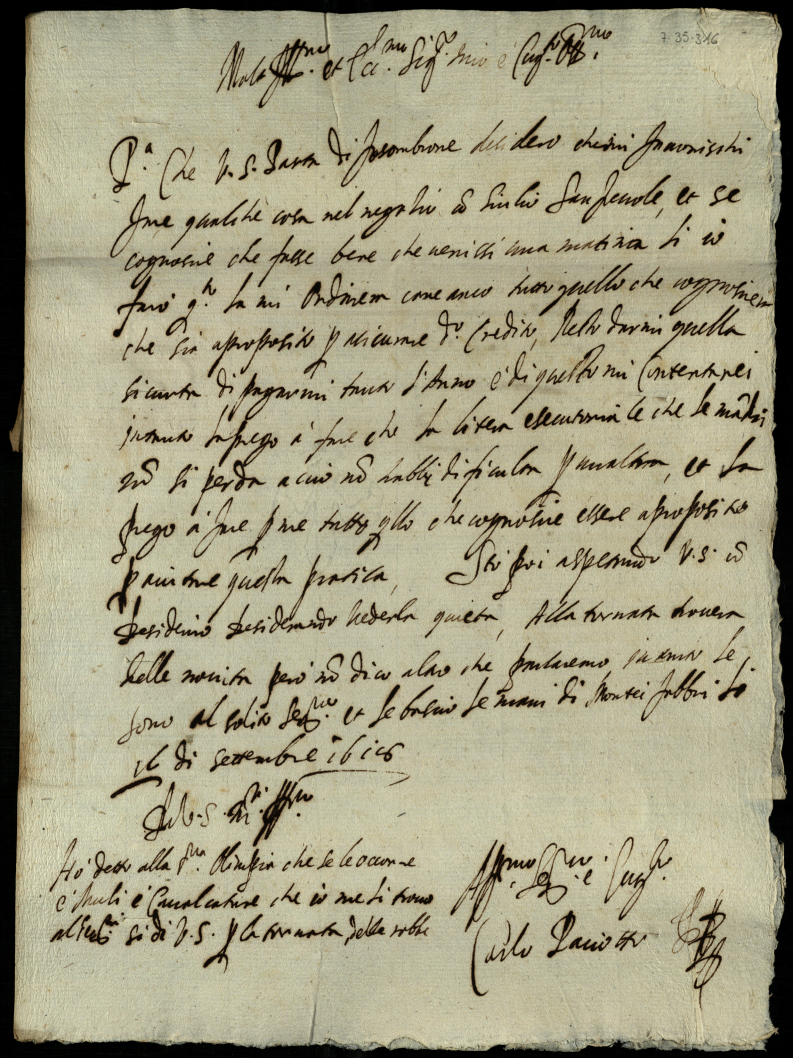 7.35.316
Molto Ill.mo et Ecc.mo Sig.r mio e Cug.no Oss.mo
P.a Che V.S. Parta di fosombrone desidero che mi favorischi
fare qualche cosa nel negotio cō Giulio, et se
cognoscie che fusse bene che venissi una matina li io
farò q.to la mi Ordinera come anco tutto quello che cognoscera
che sia aproposito p asicurare d.o Credito, Resto darmi quella
sicurta di pagarmi tanto l'Anno e di questo mi Contentarei
intanto la prego á fare che la litera esecutoria le che le mādai
nō si perda acciò nō habbi dificulta p un altra, et la
prego á fare p me tutto qllo che cognoscie essere aproposito
p aiutare questa pratica, Sto poi aspetando V.S. cō
desiderio desiderando vederla quieta, Alla tornata trovera
delle novita però nō dico altro che parlaremo intanto le
sono al solito Ser.re et le bascio le mani di Montei fabbri li
16 di settembre 1616
Di V.S. M.to Ill.re
Ho detto alla S.ra Olimpia che se le ocorre
e Muli e Cavalcature che io me li trovo
al si di V.S. p la tornata della robbe
Aff.mo Ser.re e Cug.no
Carlo Paciotto